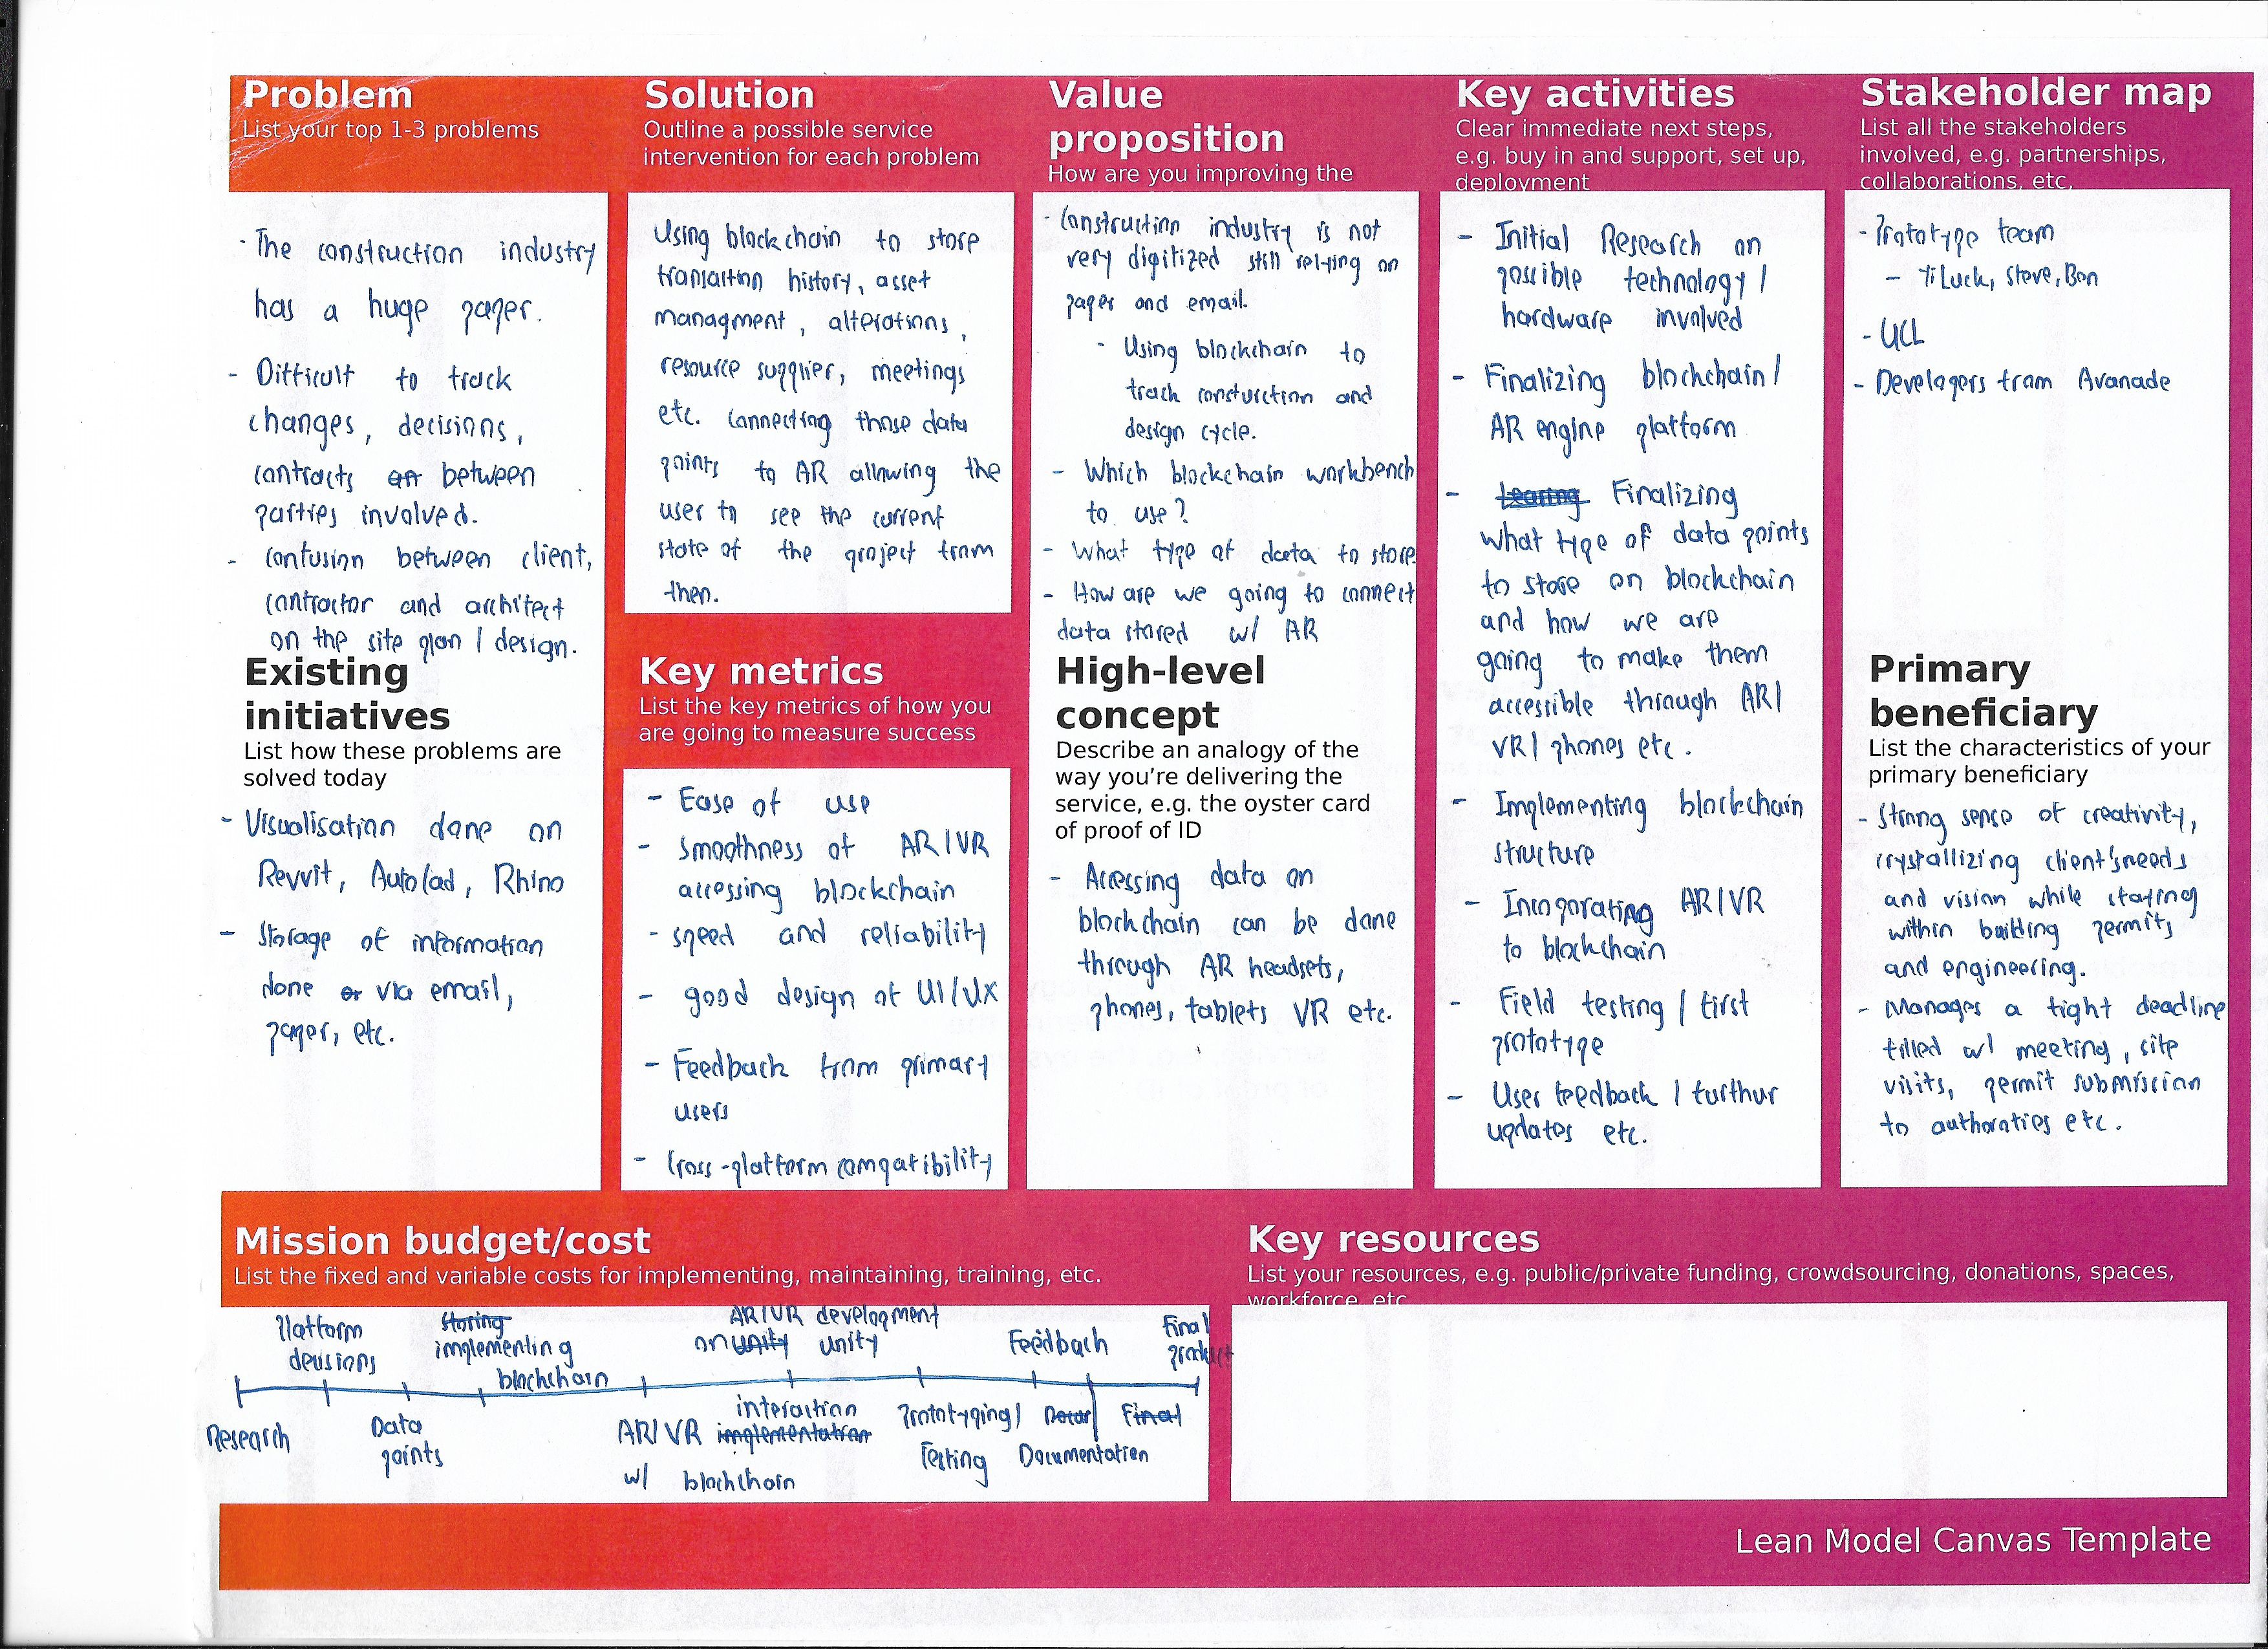 Problem
List your top 1-3 problems
- The construction industry
has a huge paper.
- Difficult to track
changes, decisions,
contracts between
parties involved.
- Confusion between client,
contractor and architect
on the site plan / design.
Existing
initiatives
List how these problems are
solved today
- Visualisation done on
Revvit, AutoCad, Rhino
- Storage of information
done or via email,
paper, etc.
Solution
Outline a possible service
intervention for each problem
Using blockchain to store
transaction history, asset
managment, alterations,
resource supplier, meetings
etc. Connecting those data
points to AR allowing the
user to see the current
state of the project from
then.
Key metrics
List the key metrics of how you
are going to measure success
- Ease of use
- Smoothness of AR/VR
accessing blockchain
- speed and reliability
- good design of UI/UX
- Feedback from primary
users
- Cross-platform compatibility
Value
proposition
How are you improving the
- Construction industry is not
very digitized still relying on
paper and email.
- Using blockchain to
track consturction and
design cycle.
- Which blockchain workbench
to use?
- What type of data to store
- How are we going to connect
data stored w/ AR
High-level
concept
Describe an analogy of the
way you’re delivering the
service, e.g. the oyster card
of proof of ID
- Accessing data on
blockchain can be done
through AR headsets,
phones, tablets VR etc.
Key activities
Clear immediate next steps,
e.g. buy in and support, set up,
deployment
- Initial Research on
possible technology /
hardware involved
- Finalizing blockchain /
AR engine platform
- Learing Finalizing
what type of data points
to store on blockchain
and how we are
going to make them
accessible through AR/
VR/ phones etc.
- Implementing blockchain
structure
- Incoporating AR/VR
to blockchain
- Field testing / first
prototype
- User feedback / furthur
updates etc.
Stakeholder map
List all the stakeholders
involved, e.g. partnerships,
collaborations, etc,
- Prototype team
- YiLuck, Steve, Ban
- UCL
- Developers from Avanade
Primary
beneficiary
List the characteristics of your
primary beneficiary
- Strong sense of creativity,
crystallizing client's needs
and vision while staying
within building permits
and engineering.
- Manages a tight deadline
filled w/ meeting, site
visits, permit submission
to authoraties etc.
Mission budget/cost
List the fixed and variable costs for implementing, maintaining, training, etc.
Platform
decisions
storing
implementing
blockchain
AR/VR development
on unity unity
Feedback
Final
product
Research
Data
points
AR/VR interaction
implementation
w/ blockchain
Prototyping/
Testing
Final
Documentation
Key resources
List your resources, e.g. public/private funding, crowdsourcing, donations, spaces,
workforce, etc
Lean Model Canvas Template